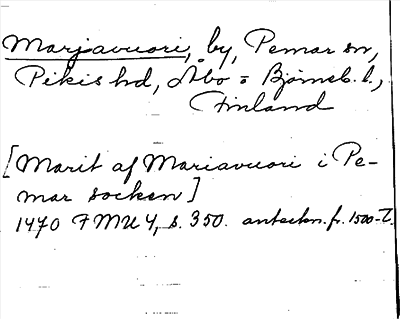 Marjavuori, by, Pemar sn,
Pikis hd, Åbo = Björneb. l.,
Finland
[Marit af Mariavuori i Pe-
mar socken]
1470 FMU 4, s. 350. anteckn. fr. 1500-T.